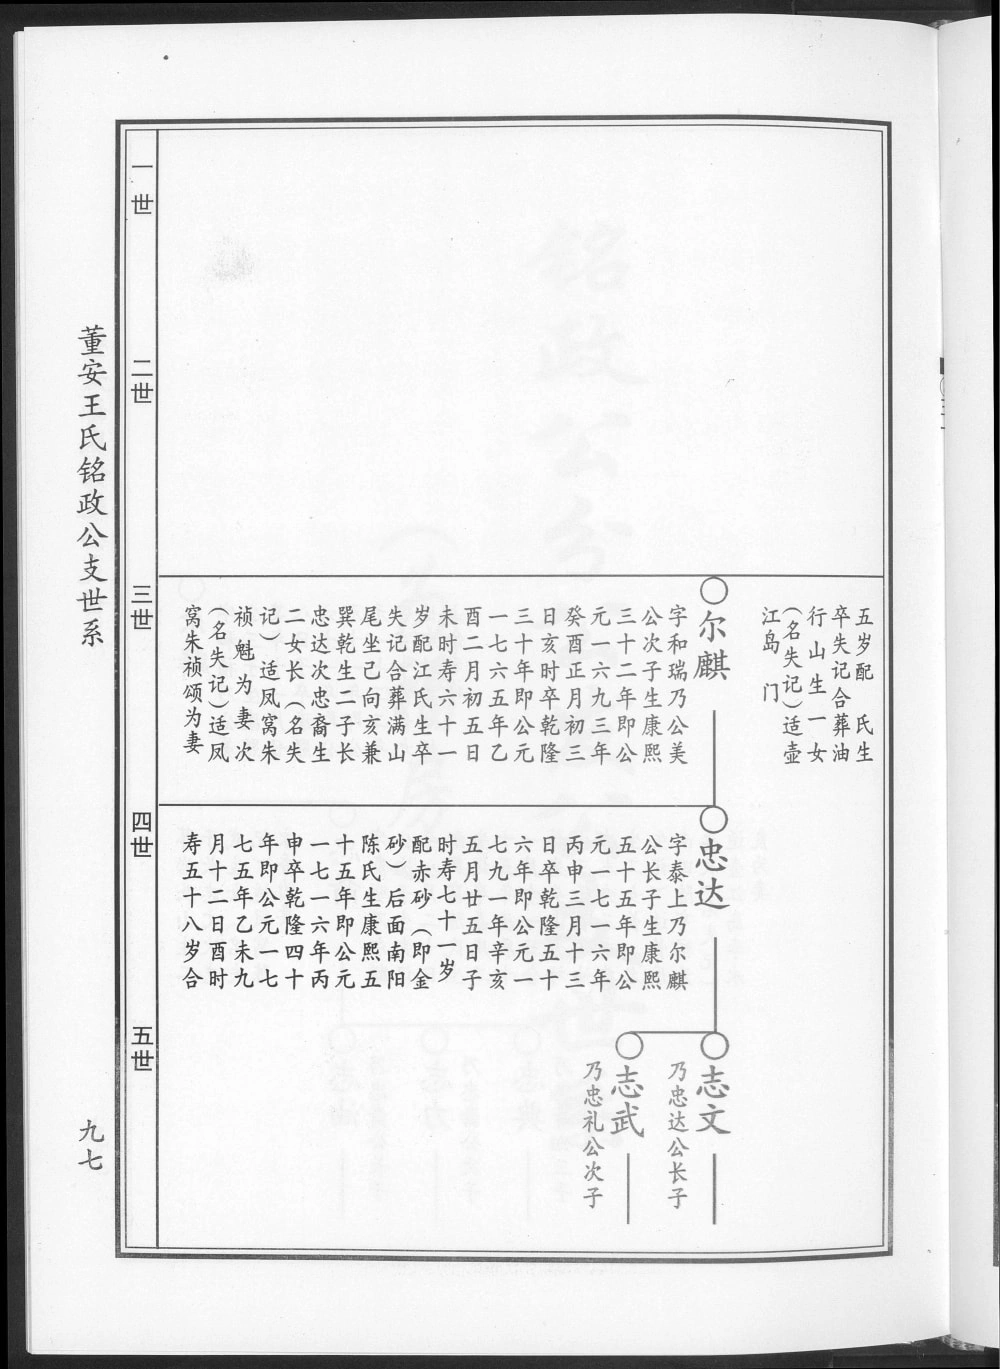 董安王氏铭政公支世系
九七
一世
二世
三世
四世
五世
五岁配　氏生
卒失记合葬油
行山生一女
(名失记)适壶
江岛　门
尔麒
字和瑞乃公美
公次子生康熙
三十二年即公
元一六九三年
癸酉正月初三
日亥时卒乾隆
三十年即公元
一七六五年乙
酉二月初五日
未时寿六十一
岁配江氏生卒
失记合葬满山
尾坐己向亥兼
巽乾生二子长
忠达次忠裔生
二女长(名失
记)适凤窝朱
祯魁为妻次
(名失记)适凤
窝朱祯颂为妻
忠达
字泰上乃尔麒
公长子生康熙
五十五年即公
元一七一六年
丙申三月十三
日卒乾隆五十
六年即公元一
七九一年辛亥
五月廿五日子
时寿七十一岁
配赤砂(即金
砂)后面南阳
陈氏生康熙五
十五年即公元
一七一六年丙
申卒乾隆四十
年即公元一七
七五年乙未九
月十二日酉时
寿五十八岁合
志文
乃忠达公长子
志武
乃忠礼公次子